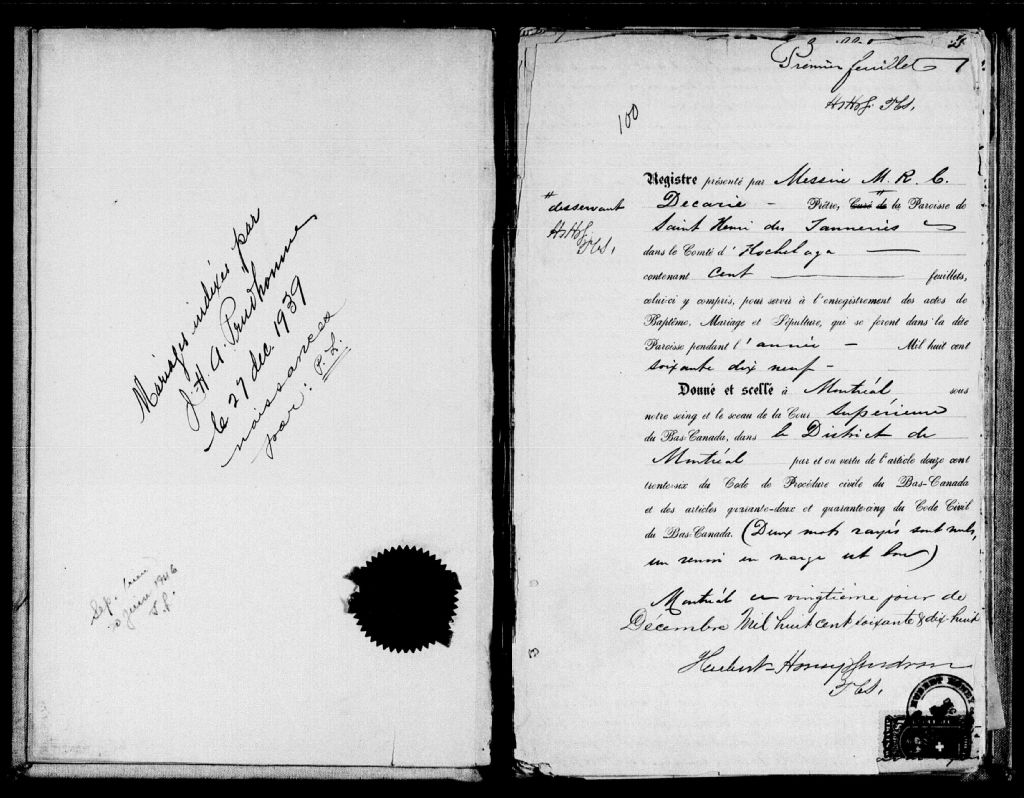 Mariages indexés par
J. H A. Prudhomme
le 27 dec. 1939
naissances
par: P. L.
Sep.
juin 1946
100
Premier feuillet
HHH&G. PCS.
Registre présenté par Messire M. R. C.
Decarie - Prêtre, Curé de la Paroisse de
# desservant
Saint Henri des Tanneries
dans le Comté d'Hochelaga
contenant Cent feuillets,
celui-ci y compris, pour servir à l'enregistrement des actes de
Baptême, Mariage et Sépulture, qui se feront dans la dite
Paroisse pendant l'année - Mil huit cent
soixante dix neuf -
Donné et scellé à Montréal sous
notre seing et le sceau de la Cour Supérieure
du Bas-Canada, dans le District de
Montréal par et en vertu de l'article douze cent
trente-six du Code de Procédure civile du Bas-Canada
et des articles quarante-deux et quarante-cinq du Code Civil
du Bas-Canada. (Deux mots rayés sont nuls,
un renvoi en marge est bon)
Montréal ce vingtième jour de
Décembre Mil huit cent soixante & dix-huit